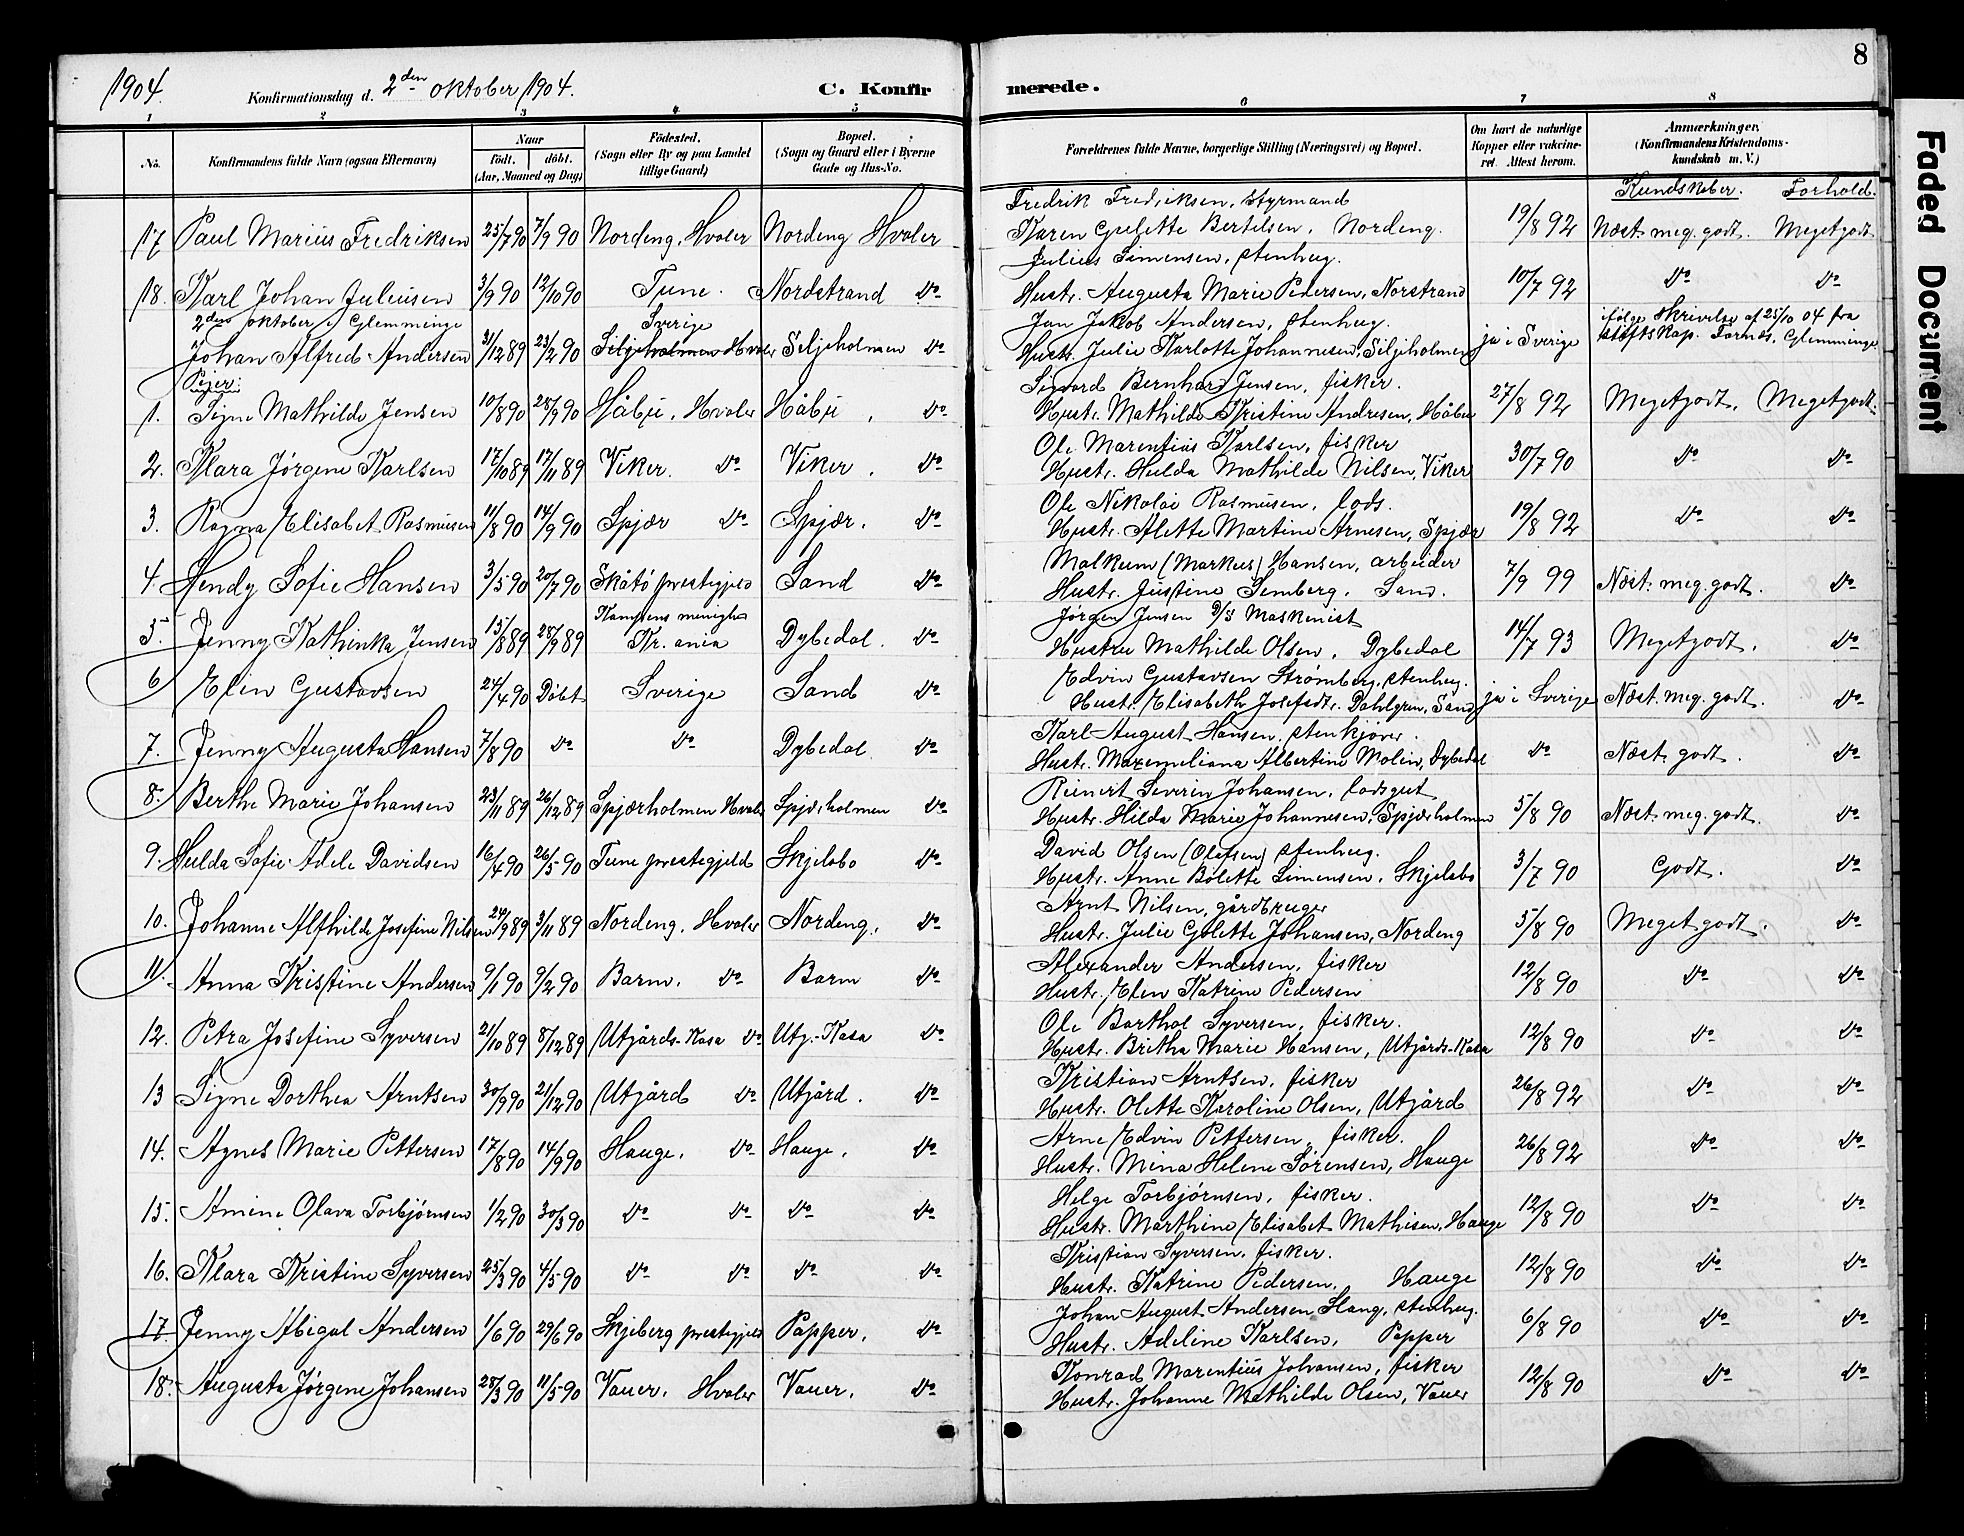 1904.
Konfirmationsdag d. 2den oktober 1904.
C. Konfirmerede.
8
Faded Document
1 2 3 4 5 6 7 8
No.
Konfirmandens fulde Navn (ogsaa Efternavn)
Naar
født. døbt.
(Aar, Maaned og Dag)
Fødested.
(Sogn eller By og paa Landet
tillige Gaard)
Bopæl.
(Sogn og Gaard eller i Byerne
Gade og Hus-No.
Forældrenes fulde Navne, borgerlige Stilling (Næringsvei) og Bopæl.
Om havt de naturlige
Kopper eller vakcine-
ret. Attest herom.
Anmærkninger.
(Konfirmandens Kristendoms-
kundskab m. V.)
Kundskaber. Forhold.
Fredrik Fredriksen, styrmand
17 Paul Marius Fredriksen 25/7 90 7/9 90 Nordeng, Hvaler Nordeng Hvaler Karen Gulette Bertelsen, Nordeng. 19/8 92 Næst. meg. godt. Megetgodt
Julius Simensen, stenhug.
18. Karl Johan Juliusen 3/9 90 12/10 90 Tune. Nordstrand do Hustr. Augusta Marie Pedersen, Norstrand 10/7 92 do do
2den oktober i Glemminge Sverige Jan Jakob Andersen, stenhug. ifølge Skrivelse af 25/10 04 fra
Johan Alfred Andersen 31/12 89 23/2 90 Siljeholmen Hvaler Siljeholmen do Hustr. Julie Karlotte Johannesen, Siljeholmen ja i Sverige stiftskap. Tornæs, Glemminge
Piger: Sigvard Bernhard Jensen, fisker.
1. Signe Mathilde Jensen 10/8 90 28/9 90 Håbu, Hvaler Håbu, do Hustr. Mathilde Kristine Andresen, Håbu 27/8 92 Megetgodt. Megetgodt.
Ole Marentius Karlsen, fisker
2. Klara Jørgene Karlsen 17/10 89 17/11 89 Viker. do Viker. do Hustr. Hulda Mathilde Nilsen, Viker 30/7 90 do do
Ole Nikolai Rasmusen, lods.
3. Ragna Elisabet Rasmusen 11/8 90 14/9 90 Spjær do Spjær. do Hustr. Alette Martine Arnesen, Spjær 19/8 92 do do
Malkum (Markus) Hansen, arbeider
4. Hendy Sofie Hansen 3/5 90 20/7 90 Skåtø prestegjeld Sand do Hustr. Justine Semberg. Sand. 7/9 99 Næst. meg. godt. do
Kampens menighed Jørgen Jensen D/S Maskenist
5. Jenny Kathinka Jensen 15/8 89 28/9 89 Kr.ania Dybedal. do Hustru Mathilde Olsen, Dybedal 14/7 93 Megetgodt. do
Edvin Gustavsen Strømberg, stenhug.
6 Elin Gustavsen 24/4 90 Døbt Sverige Sand do Hustr. Elisabeth Josefsdtr. Dahlgren, Sand ja i Sverige Næst. meg. godt. do
Karl August Hansen, stenkjører.
7. Jenny Augusta Hansen 7/8 90 do do Dybedal do Hustr. Maxemiliana Albertine Molin, Dybedal do Næst godt. do
Reinert Severin Johansen, lodsgut
8. Berthe Marie Johansen 23/11 89 26/12 89 Spjærholmen Hvaler Spjærholmen do Hustr. Hilda Marie Johannesen, Spjærholmen 5/8 90 Næst. meg. godt. do
David Olsen (Olafsen) stenhug.
9. Hulda Sofie Adele Davidsen 16/4 90 26/5 90 Tune prestegjeld Skjelsbo do Hustr. Anne Bolette Simensen, Skjelsbo 3/7 90 Godt. do
Arnt Nilsen, gårdbruger
10. Johanne Alfhilde Josefine Nilsen 24/9 89 3/11 89 Nordeng, Hvaler Nordeng, do Hustr. Julie Golette Johansen, Nordeng 5/8 90 Meget godt. do
Alexander Andersen, fisker
11. Anna Kristine Andersen 9/1 90 9/2 90 Barm, do Barm do Hustr. Elen Katrine Pedersen 12/8 90 do do
Ole Barthol Syversen, fisker.
12. Petra Josefine Syversen 21/10 89 8/12 89 Utgårds-Kasa do Utg.-Kasa do Hustr. Britha Marie Hansen, Utgårds-Kasa 12/8 90 do do
Kristian Arntsen, fisker
13 Signe Dorthea Arntsen 30/9 90 21/12 90 Utgård do Utgård. do Hustr. Olette Karoline Olsen, Utgård 26/8 92 do do
Arne Edvin Pettersen, fisker.
14. Agnes Marie Pettersen 17/8 90 14/9 90 Hauge, do Hauge, do Hustr. Mina Helene Sørensen, Hauge 26/8 92 do do
Helge Torbjørnsen, fisker.
15. Amine Olava Torbjørnsen 1/2 90 30/3 90 do do do do Hustr. Marthine Elisabet Mathisen, Hauge 12/8 90 do do
Kristian Syversen, fisker.
16. Klara Kristine Syversen 25/3 90 4/5 90 do do do do Hustr. Katrine Pedersen, Hauge 12/8 90 do do
Johan August Andersen Slang, stenhug.
17. Jenny Abigal Andersen 1/6 90 29/6 90 Skjeberg prestegjeld Papper, do Hustr. Adeline Karlsen, Papper 6/8 90 do do
Konrad Marentius Johansen, fisker
18. Augusta Jørgene Johansen 28/3 90 11/5 90 Vauer, Hvaler Vauer, do Hustr. Johanne Mathilde Olsen, Vauer 12/8 90 do do